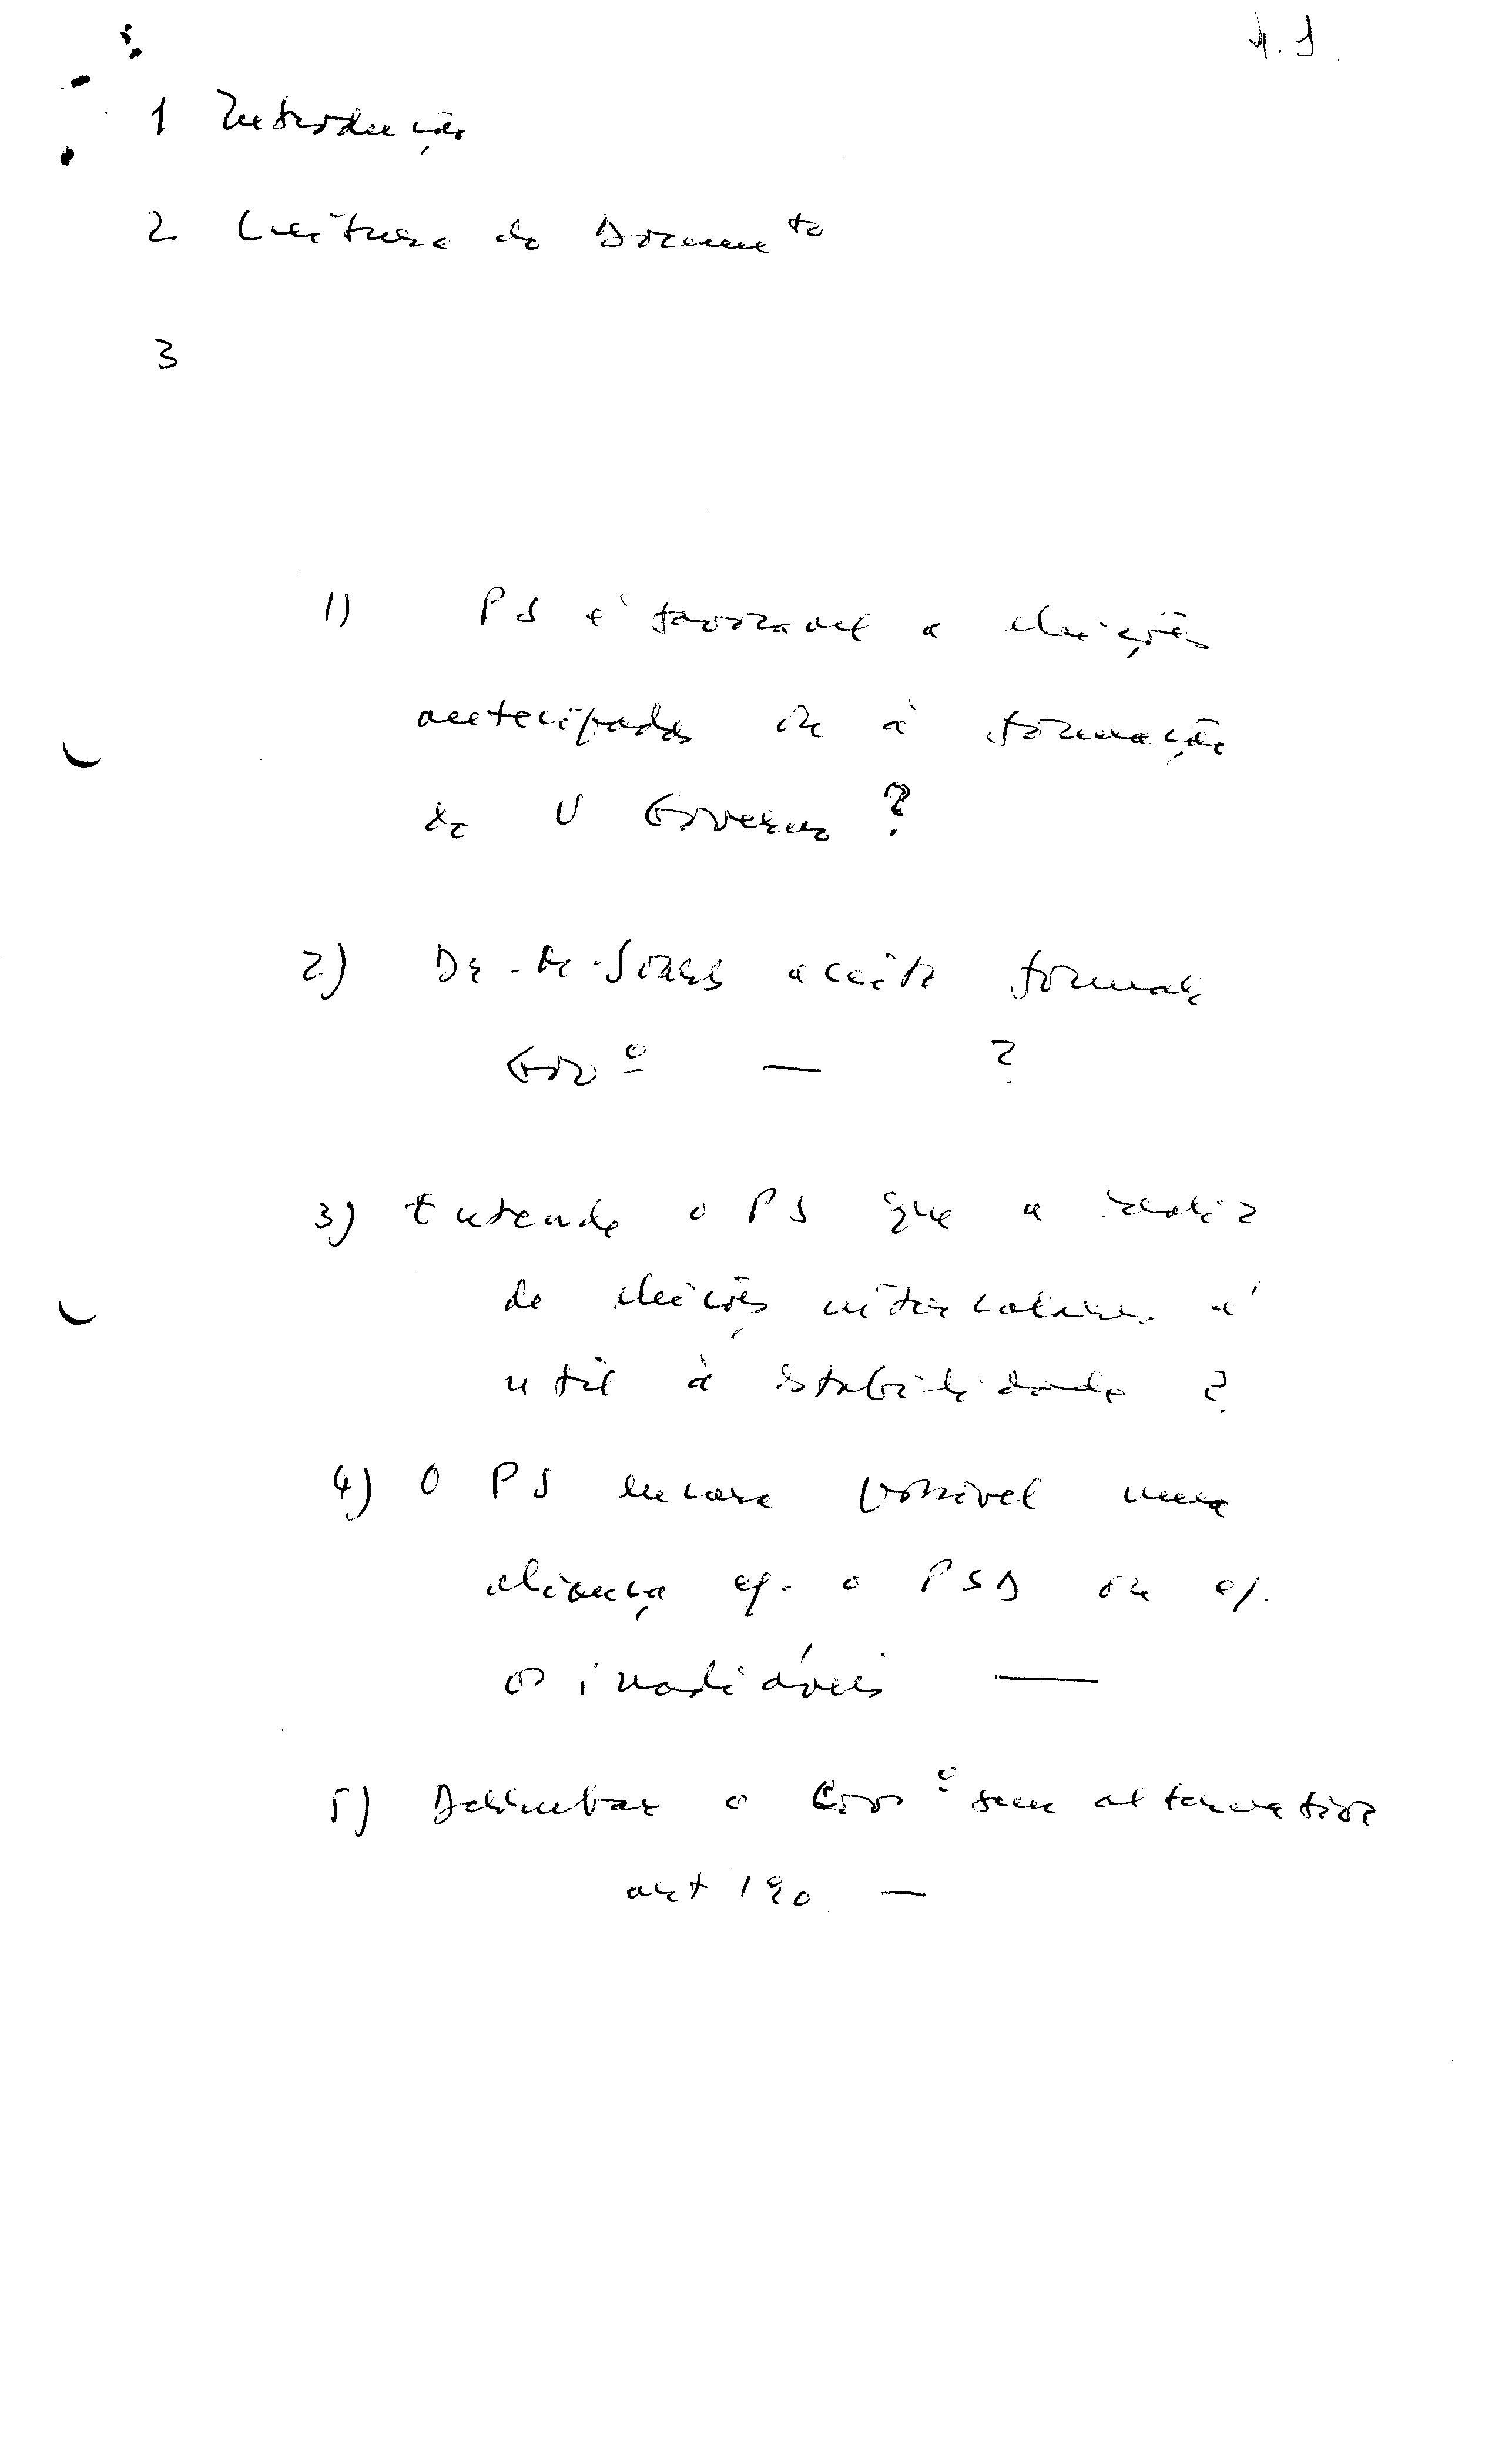 1 Introdução
2 Leitura do Documto
3
1) PS é favoravel a eleições
antecipadas ou à formação
do V Governo ?
2) Dr. M. Soares aceita formar
Govº — ?
3) Entende o PS que a realiz
de eleições intercalares é
util à estabilidade ?
4) O PS encara possivel uma
aliança c/. o PSD ou c/.
os inadiáveis —
5) Derrubar o Govº sem alternativa
art 190 —